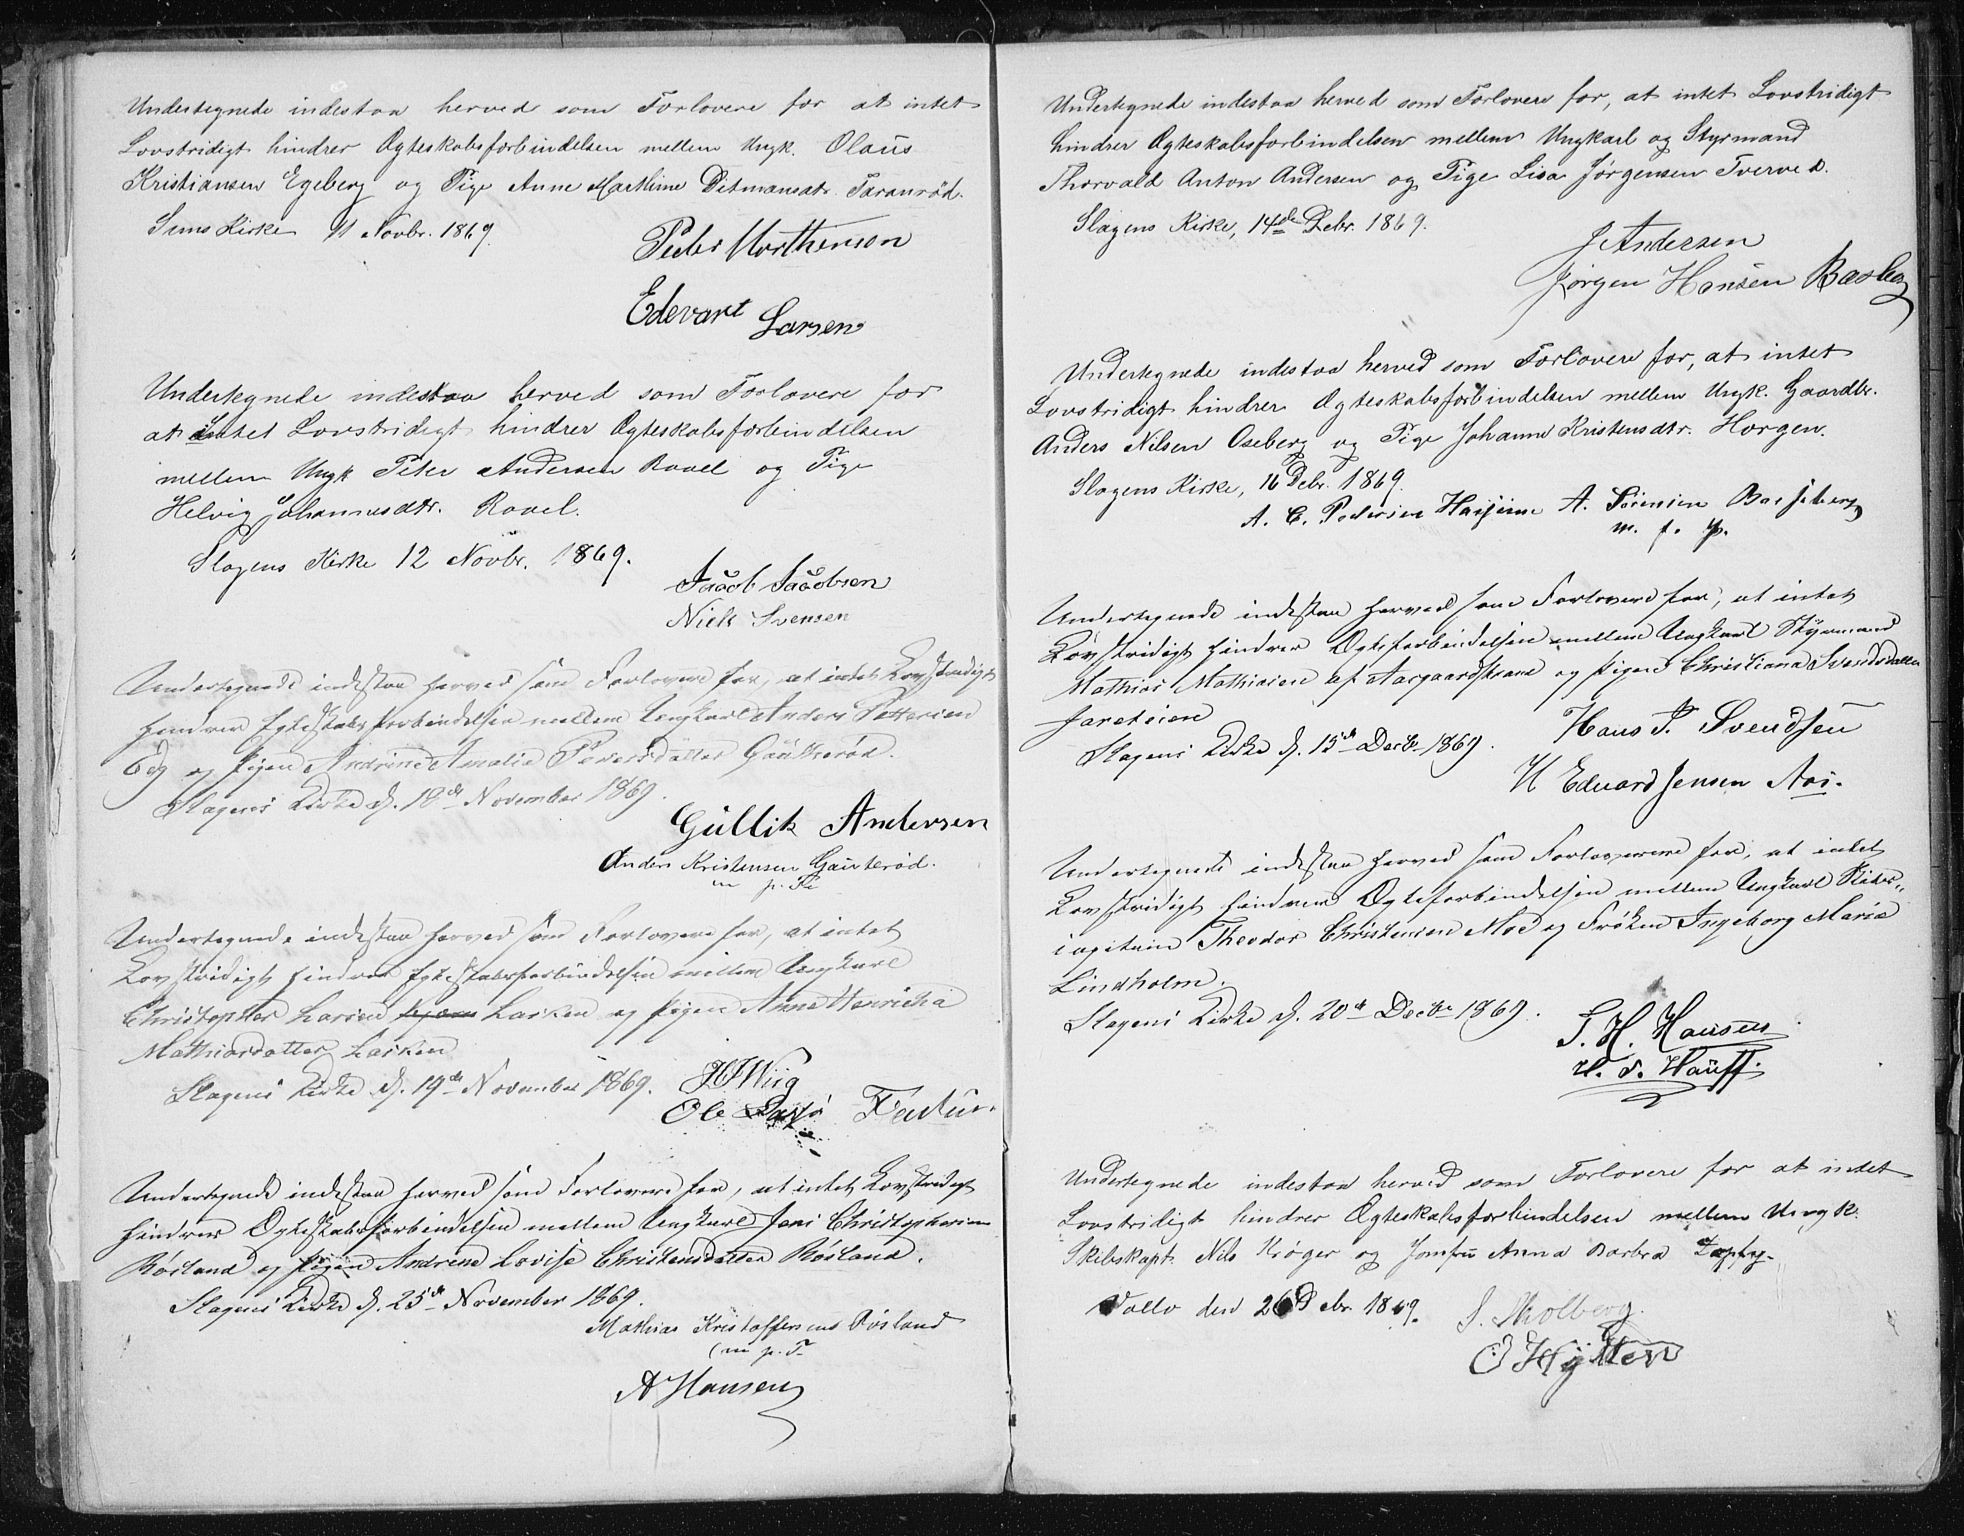 Undertegnede indestaa herved som Forlovere for at intet
Lovstridigt hindrer Ægteskabsforbindelsen mellem Ungk. Olaus
Kristiansen Egeberg og Pige Anne Marthine Ditmansdtr. Taranrød.
Sems Kirke 11 Novbr. 1869
Peder Morthenson
Edevart Larsen
Undertegnede indestaa herved som Forlovere for
at intet Lovstridigt hindrer Ægteskabsforbindelsen
mellem Ungk Peter Andersen Rovel og Pige
Helvig Johannesdtr. Rovel.
Slagens Kirke 12 Novbr. 1869.
Jacob Jacobsen
Niels Svensen
Undertegnede indestaa herved som Forlovere for, at intet Lovstridigt
hindrer Egteskabsforbindelsen mellem Ungkarl Anders Pettersen
og Pigen Andrine Amalie Pedersdatter Gauterød.
Slagens Kirke d. 18de November 1869.
Gullik Andersen
Anders Kristensen Gauterød.
m p. F.
Undertegnede indestaa herved som Forlovere for, at intet
Lovstridigt hindrer Egteskabsforbindelsen mellem Ungkarl
Christopher Larsen Larken og Pigen Anne Henricha
Mathiasdatter Larken
Slagens Kirke d. 19de November 1869.
H Wiig
Ole
Undertegnede indestaa herved som Forlovere for, at intet Lovstridigt
hindrer Ægteskabsforbindelsen mellem Ungkarl Jens Christophersen
Røsland og Pigen Andrine Lovise Christensdatter Røsland.
Slagens Kirke d. 25de November 1869.
Mathias Kristoffersens Røsland
(m p. F.
A Hansen
Undertegnede indestaa herved som Forlovere for, at intet Lovstridigt
hindrer Ægteskabsforbindelsen mellem Ungkarl og Styrmand
Thorvald Anton Andersen og Pige Lisa Jørgensen Tverved.
Slagens Kirke, 14de Debr. 1869.
J Andersen
Jørgen Hansen Basberg
Undertegnede indestaa herved som Forlovere for, at intet
Lovstridigt hindrer Ægteskabsforbindelsen mellem Ungk. Gaardbr.
Anders Nilsen Oseberg og Pige Johanne Kristensdtr. Horgen.
Slagens Kirke, 16 Debr. 1869.
A. C. Pedersen A. Sørensen Basberg
m. f. p.
Undertegnede indestaa herved som Forlovere for, at intet
Lovstridigt hindrer Ægteforbindelsen mellem Ungkarl Styrmand
Mathias Mathiesen af Aasgaardstrand og Pigen Christiana Svendsdatter
Jareteien
Slagens Kirke d. 15de Decbr 1869.
Hans P. Svendsen
H Eduard Jensen Aas.
Undertegnede indestaa herved som Forloverne for, at intet
Lovstridigt hindrer Ægteforbindelsen mellem Ungkarl Skibs-
capitain Theodor Christensen Moe og Frøken Ingeborg Maria
Lindholm.
Slagens Kirke d. 20de Decbr 1869.
S. H. Hansen
Hauff.
Undertegnede indestaa herved som Forlovere for at intet
Lovstridigt hindrer Ægteskabsforbindelsen mellem Ungk.
Skibskapt. Nils Krøger og Jomfru Anna Barbra
Vallø den 26 Debr. 1869.
S. Stolberg.
O Hytten